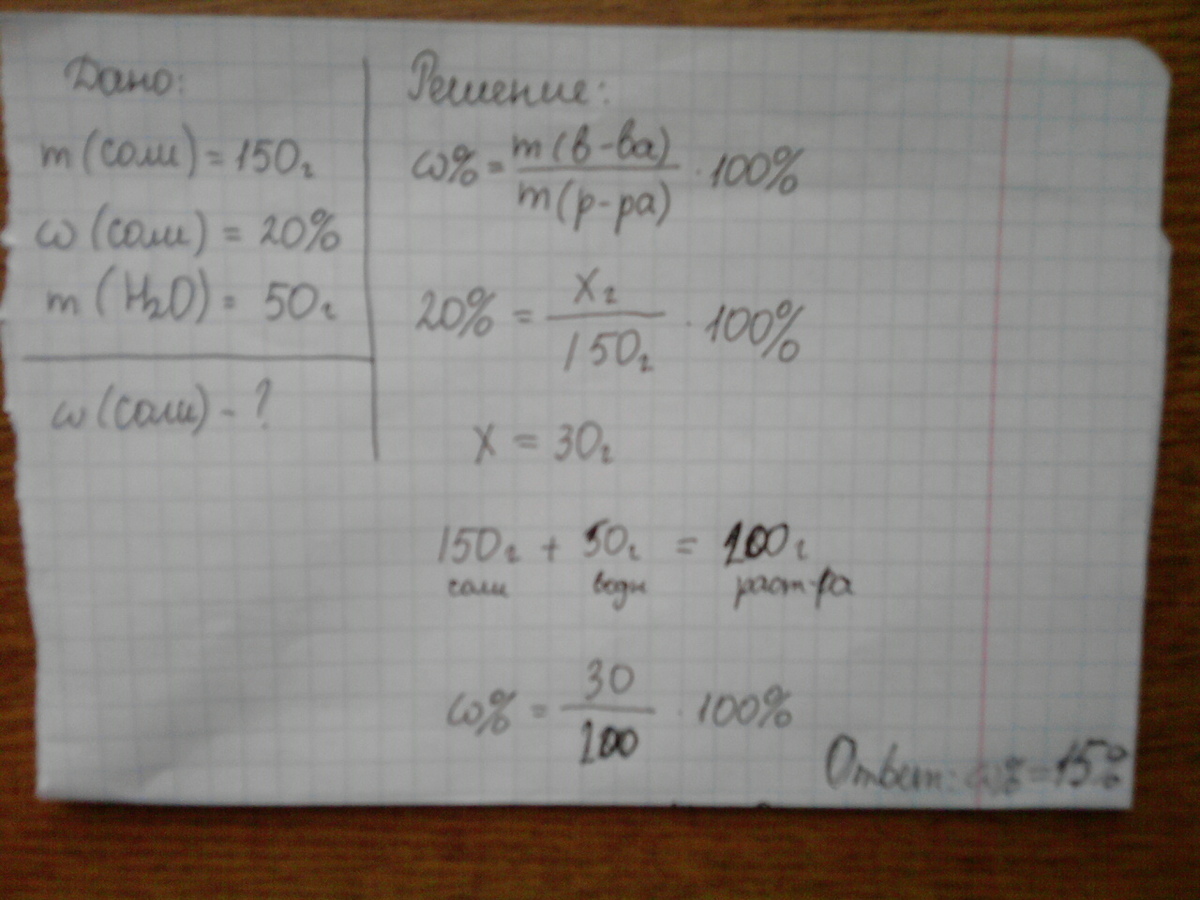 Дано:
m (соли) = 150г
ω (соли) = 20%
m (H₂O) = 50г
ω (соли) - ?
Решение:
ω% = m(в-ва) / m(р-ра) · 100%
20% = Xг / 150г · 100%
X = 30г
150г + 50г = 200г
соли воды раст-ра
ω% = 30 / 200 · 100%
Ответ: ω% = 15%